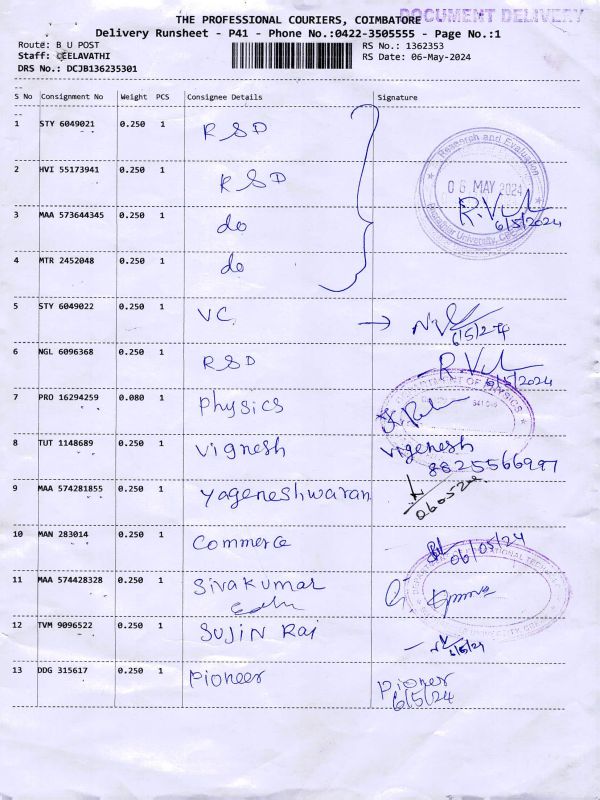 THE PROFESSIONAL COURIERS, COIMBATORE
DOCUMENT DELIVERY
Delivery Runsheet - P41 - Phone No.:0422-3505555 - Page No.:1
Route: B U POST
RS No.: 1362353
Staff: LEELAVATHI
RS Date: 06-May-2024
DRS No.: DCJB136235301
S No Consignment No Weight PCS Consignee Details Signature
1 STY 6049021 0.250 1 RSD
Research and Evaluation
2 HVI 55173941 0.250 1 RSD
06 MAY 2024
3 MAA 573644345 0.250 1 do
6/5/2024
4 MTR 2452048 0.250 1 do
5 STY 6049022 0.250 1 VC
6/5/24
6 NGL 6096368 0.250 1 RSD
6/5/2024
7 PRO 16294259 0.080 1 Physics
DEPARTMENT OF PHYSICS
8 TUT 1148689 0.250 1 Vignesh Vigenesh
8825566997
9 MAA 574281855 0.250 1 Yageneshwaran
10 MAN 283014 0.250 1 Commerce
06/05/24
11 MAA 574428328 0.250 1 Sivakumar
Edn
12 TVM 9096522 0.250 1 Sujin Raj
6/5/24
13 DDG 315617 0.250 1 Pioneer Pioner
6/5/24